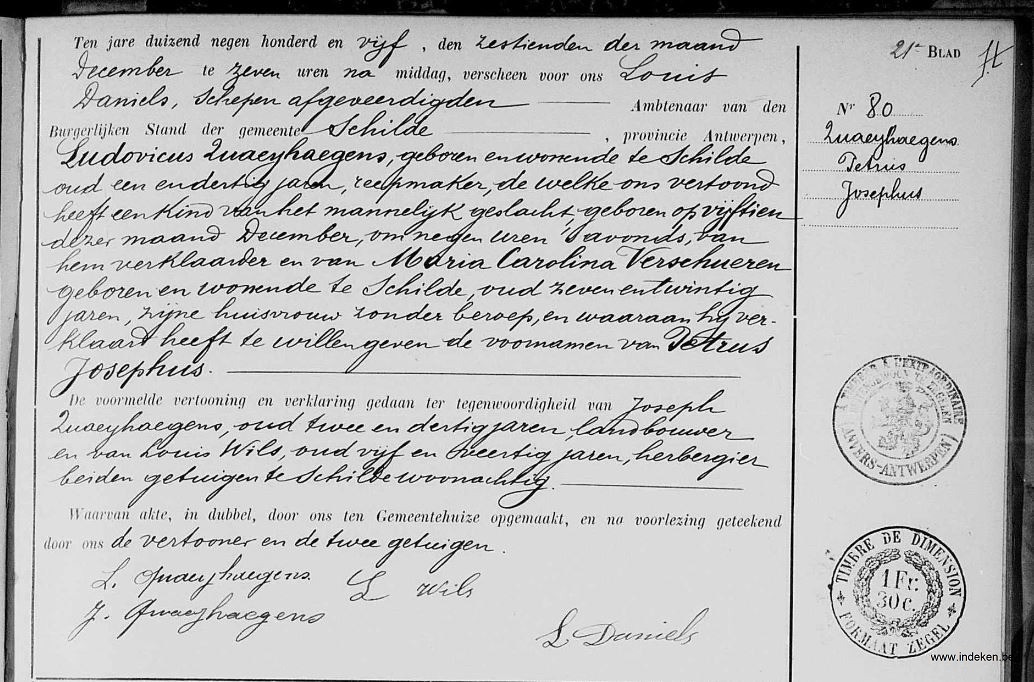 Ten jare duizend negen honderd en vijf, den zestienden der maand
December te zeven uren na middag, verscheen voor ons Louis
Daniels, Schepen afgeveerdigden Ambtenaar van den
Burgerlijken Stand der gemeente Schilde, provincie Antwerpen,
Ludovicus Quaeyhaegens, geboren en wonende te Schilde
oud een en dertig jaren, reepmaker, de welke ons vertoond
heeft een kind van het mannelijk geslacht, geboren op vijftien
dezer maand December, om negen uren 's avonds, van
hem verklaarder en van Maria Carolina Verschueren
geboren en wonende te Schilde, oud zeven en twintig
jaren, zijne huisvrouw zonder beroep, en waaraan hij ver-
klaard heeft te willen geven de voornamen van Petrus
Josephus.
De voormelde vertooning en verklaring gedaan ter tegenwoordigheid van Joseph
Quaeyhaegens, oud twee en dertig jaren, landbouwer
en van Louis Wils, oud vijf en veertig jaren, herbergier
beiden getuigen te Schilde woonachtig.
Waarvan akte, in dubbel, door ons ten Gemeentehuize opgemaakt, en na voorlezing geteekend
door ons de vertooner en de twee getuigen.
L. Quaeyhaegens
L Wils
J. Quaeyhaegens
L Daniels
21e BLAD
Nr 80
Quaeyhaegens
Petrus
Josephus
TIMBRE A L'EXTRAORDINAIRE
(ANVERS-ANTWERPEN)
TIMBRE DE DIMENSION
1 Fr.
30 c.
FORMAAT ZEGEL
www.indeken.be